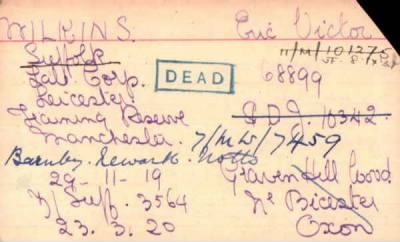 WILKINS. Eric Victor
11/M/101275
Suffolk
Lab Corp. DEAD 68899
Leicester.
Training Reserve S.D.I. 10342
Manchester. 7/MW/7459
Barnby. Newark. Notts
29-11-19 Graven Hill Wood
D/Suff. 3564 Nr Bicester
23. 3. 20 Oxon